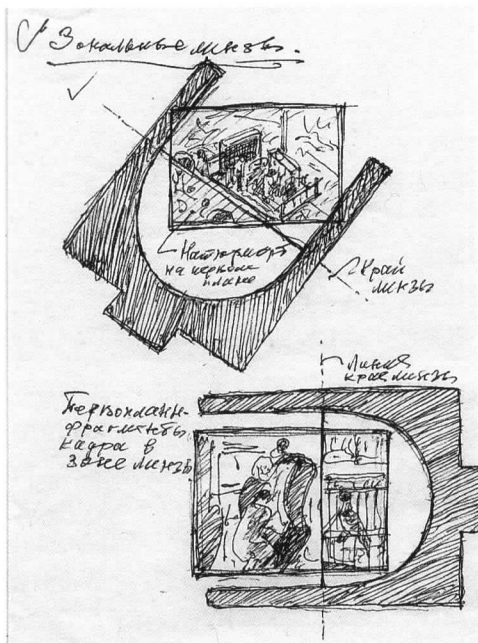 Зональные линзы.
Натюрморт
на первом
плане
Край
линзы
Линия
края линзы
Первоплан-
фрагменты
кадра в
зоне линзы